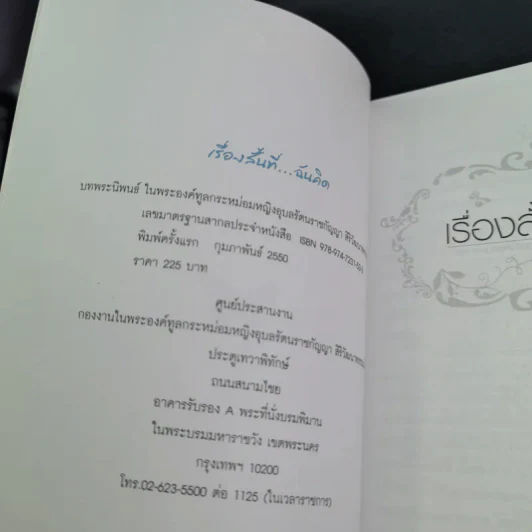 เรื่องสั้นที่...ฉันคิด
บทพระนิพนธ์ ในพระองค์ทูลกระหม่อมหญิงอุบลรัตนราชกัญญา สิริวัฒนา
เลขมาตรฐานสากลประจำหนังสือ ISBN 978-974-7231-
พิมพ์ครั้งแรก กุมภาพันธ์ 2550
ราคา 225 บาท
ศูนย์ประสานงาน
กองงานในพระองค์ทูลกระหม่อมหญิงอุบลรัตนราชกัญญา สิริวัฒนา
ประตูเทวาพิทักษ์
ถนนสนามไชย
อาคารรับรอง A พระที่นั่งบรมพิมาน
ในพระบรมมหาราชวัง เขตพระนคร
กรุงเทพฯ 10200
โทร.02-623-5500 ต่อ 1125 (ในเวลาราชการ)
เรื่องสั้